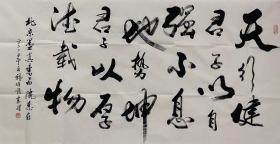 天行健
君子以自
强不息
地势坤
君子以厚
德载物
北京墨真书画院惠存